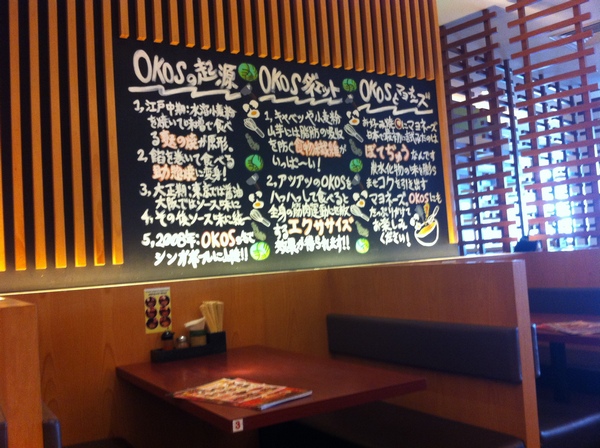 OKOSの起源
1、江戸中期:水溶小麦粉
を焼いて味噌で食べ
る麩の焼が原形。
2、餡を巻いて食べる
助惣焼に変身!
3、大正期:東京では醤油
大阪ではソース味に
4、その後ソース味に統一
5、2008年:OKOSが
シンガポールに上陸!!
OKOSダイエット
1、キャベツや小麦粉
山芋には脂肪の吸収
を防ぐ食物繊維が
いっぱ〜い!
2、アツアツのOKOSを
ハッハッして食べると
全身の筋肉運動に
するエクササイズ
効果が得られます!!
OKOSとマヨネーズ
お好み焼にマヨネーズ
日本で最初に
ぼてぢゅうなんです
炭水化物の味を
ませコクを引き出す
マヨネーズ。OKOSにも
たっぷりかけて
お楽しみ
ください!
3